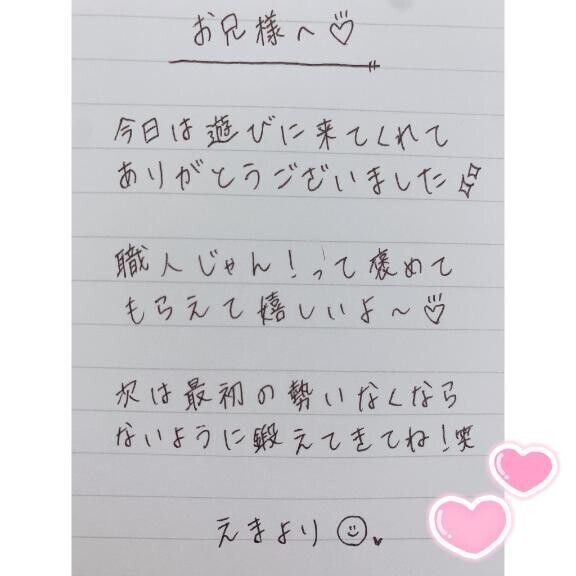 お兄様へ♡
今日は遊びに来てくれて
ありがとうございました
職人じゃん！って褒めて
もらえて嬉しいよ～♡
次は最初の勢いなくなら
ないように鍛えてきてね！笑
えまより